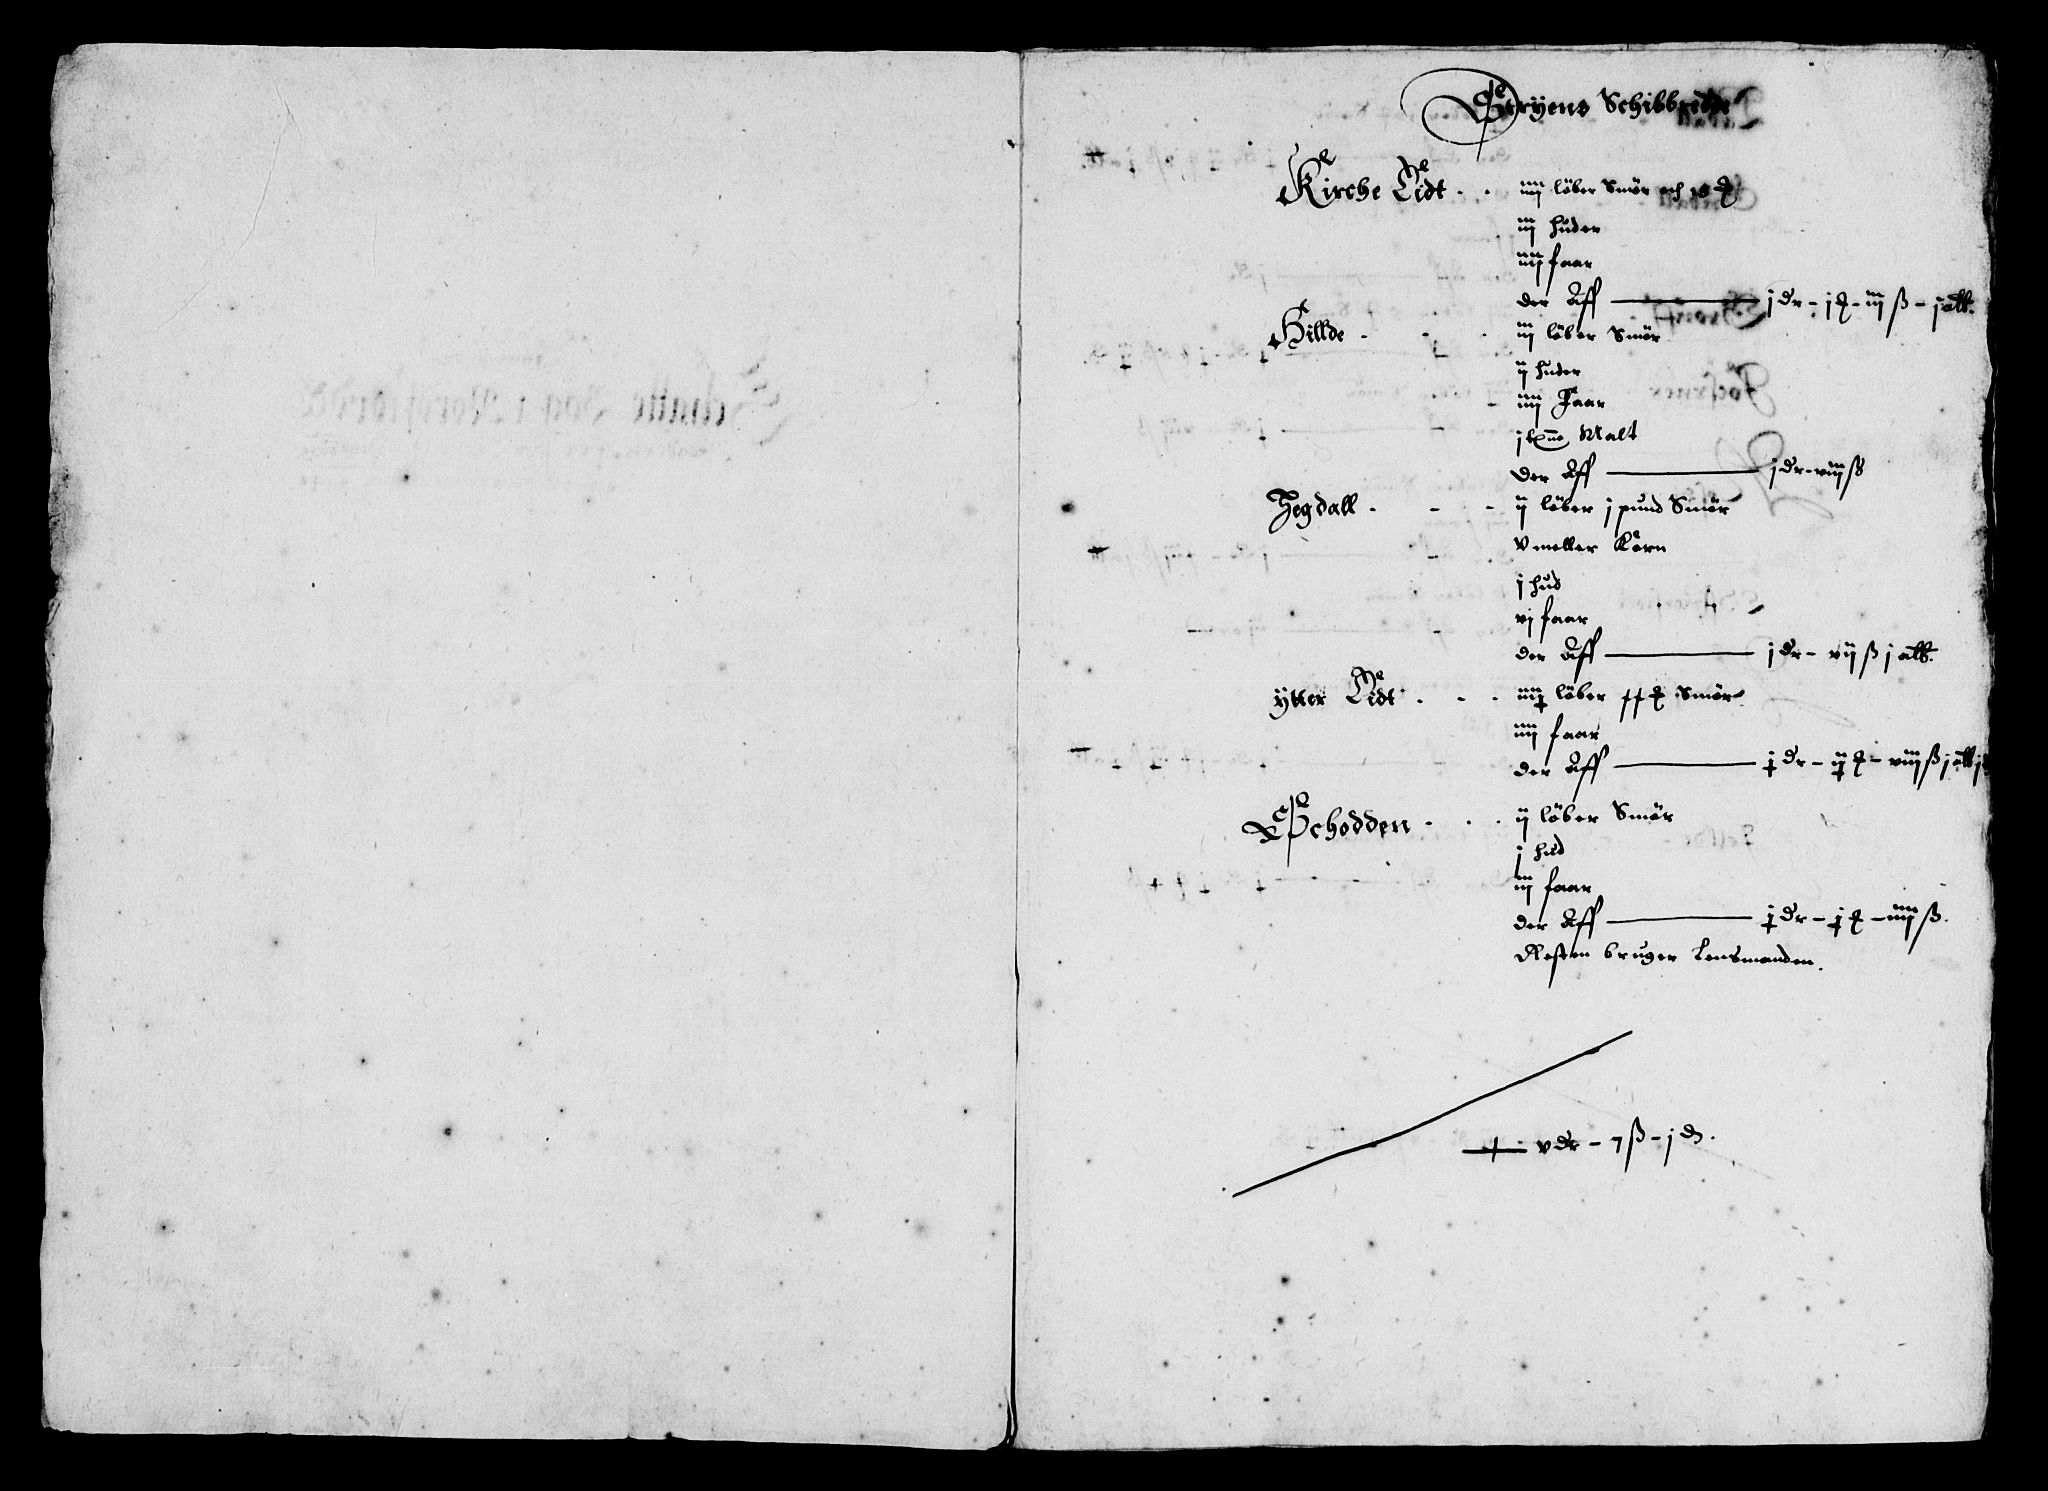 Stryens Schibbredde
Kirche Eidt - - iiij löber Smör och 18 ꝑ
iij huder
iiij faar
der Aff — j dr - j ꝑ - iij ß - j alb.
Hillde - - - iij löber Smör
ij huder
iiij Faar
j tønne Malt
der Aff — j dr - viij ß
Hegdall - - - ij löber j pund Smör
V meller Korn
j hud
vj faar
der Aff — j dr - vij ß j alb.
ÿtter Eidt - - - iiij löber ꝑ Smör
iiij faar
der Aff — j dr - ij ꝑ - viij ß j alb j
Schodden - - - ij löber Smör
j hud
iij faar
der Aff — j dr - j ꝑ - iiij ß.
Resten bruger Lensmanden.
v dr - 7 ß - j d.